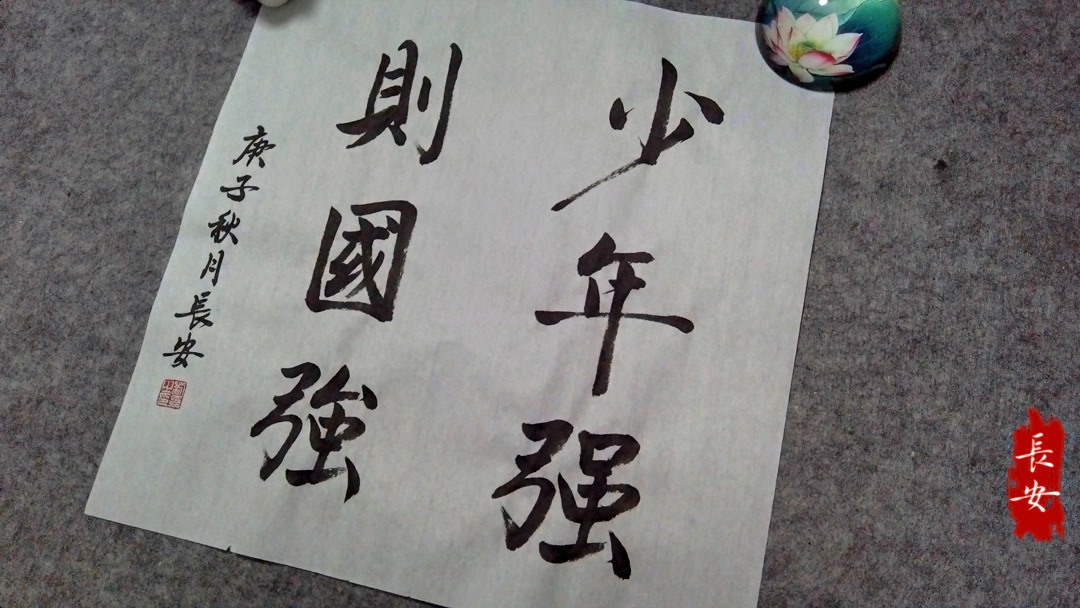 少年强
則國強
庚子秋月長安
長安